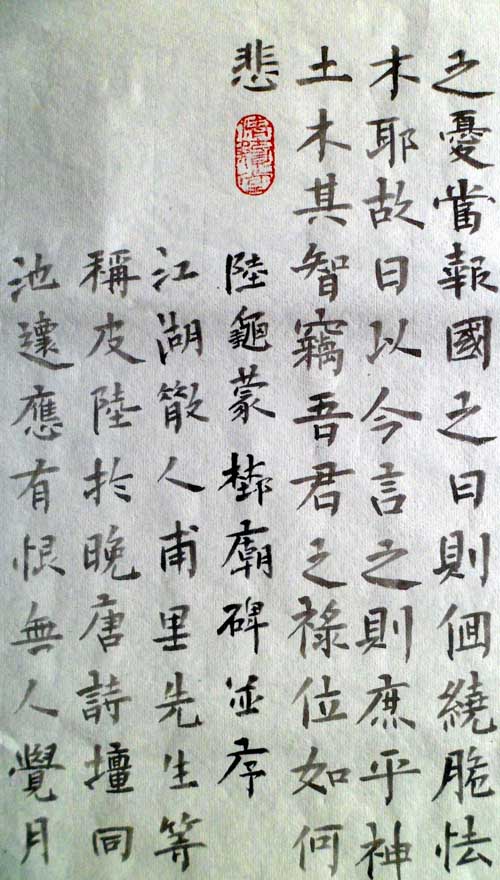 之憂當報國之日則佪繞脆怯
木耶故曰以今言之則庶乎神
土木其智竊吾君之祿位如何
悲
陸龜蒙埜廟碑並序
江湖散人甫里先生等
稱皮陸於晚唐詩壇同
池還應有恨無人覺月